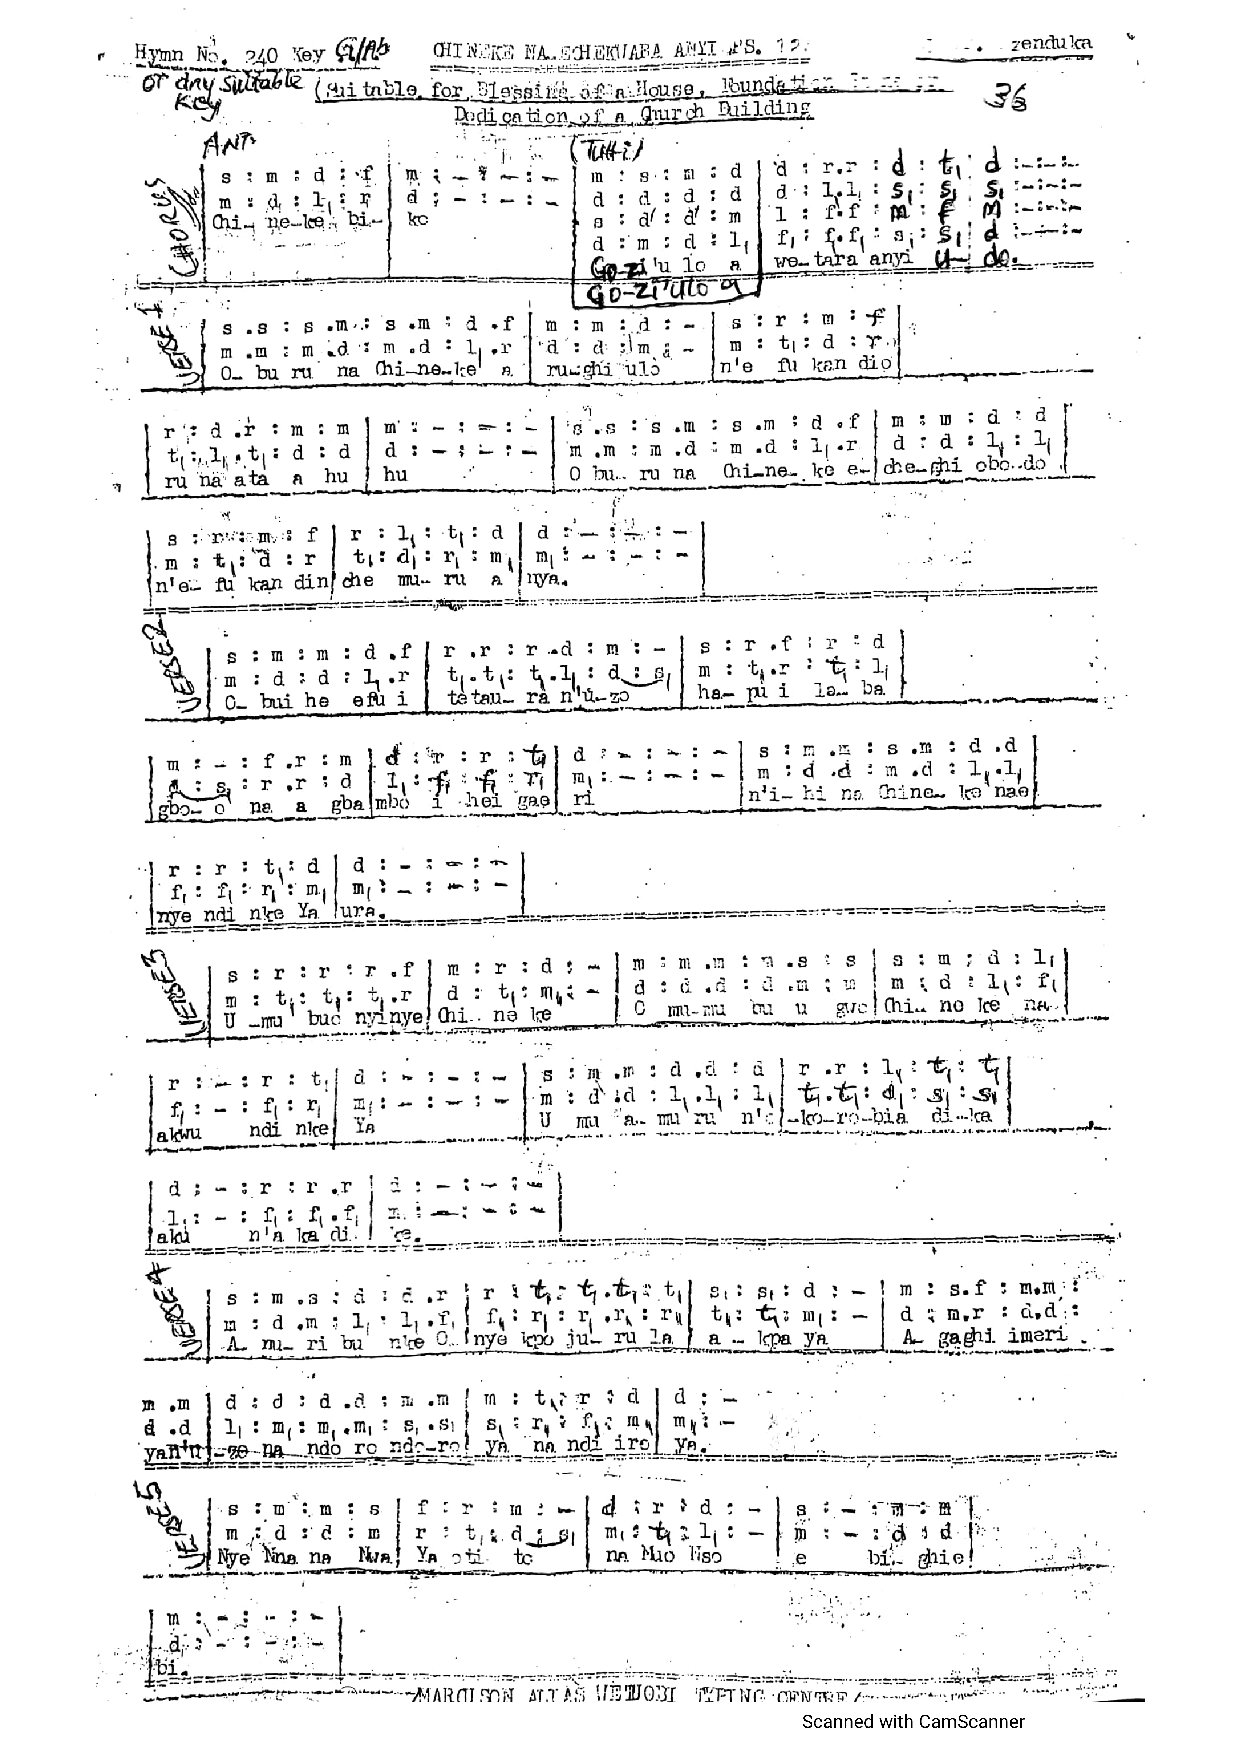 Hymn No. 240 Key G/Ab CHINEKE NA ECHEKWARA ANYI PS. 12 zenduka
or any suitable Key
(Suitable for Blessing of a House, Foundation
Dedication of a Church Building
36
ANT. (TUTTI)
CHORUS
s : m : d : f | m : - : - : - | m : s : m : d | d : r.r : d : t₁ | d :-:-:-
m : d : l₁ : r | d : - : - : - | d : d : d : d | d : l₁.l₁ : s₁ : s₁ | s₁ :-:-:-
s : d' : d' : m | l : f.f : m : f | m :-:-:-
d : m : d : l₁ | f₁ : f₁.f₁ : s₁ : s₁ | d :-:-:-
Chi- ne-ke bi- ko Go-zi 'u lo a we-tara anyi u- do.
Go-zi 'ulo a
VERSE 1
s .s : s .m : s .m : d .f | m : m : d : - | s : r : m : f
m .m : m .d : m .d : l₁ .r | d : d : m : - | m : t₁ : d : r
O- bu ru na Chi-ne-ke a ru-ghi ulo n'e fu kan dio
r : d .r : m : m | m : - : - : - | s .s : s .m : s .m : d .f | m : m : d : d
t₁ : l₁ .t₁ : d : d | d : - : - : - | m .m : m .d : m .d : l₁ .r | d : d : l₁ : l₁
ru na ata a hu hu O bu- ru na Chi-ne- ke e- che-ghi obo-do
s : r : m : f | r : l₁ : t₁ : d | d : - : - : -
m : t₁ : d : r | t₁ : d₁ : r₁ : m₁ | m₁ : - : - : -
n'e- fu kan din che mu- ru a nya.
VERSE 2
s : m : m : d .f | r .r : r .d : m : - | s : r .f : r : d
m : d : d : l₁ .r | t₁ .t₁ : t₁ .l₁ : d : s₁ | m : t₁ .r : t₁ : l₁
O- bui he efu i tetau- ra n'u-zo ha- pu i la- ba
m : - : f .r : m | d : r : r : t₁ | d : - : - : - | s : m .m : s .m : d .d
d : s₁ : r .r : d | l₁ : f₁ : f₁ : r₁ | m₁ : - : - : - | m : d .d : m .d : l₁ .l₁
gbo- o na a gba mbo i hei gae ri n'i- hi na Chine- ke nae
r : r : t₁ : d | d : - : - : -
f₁ : f₁ : r₁ : m₁ | m₁ : - : - : -
nye ndi nke Ya ura.
VERSE 3
s : r : r : r .f | m : r : d : - | m : m .m : m .s : s | s : m : d : l₁
m : t₁ : t₁ : t₁ .r | d : t₁ : m₁ : - | d : d .d : d .m : m | m : d : l₁ : f₁
U -mu bue nyinye Chi- ne ke O mu-mu bu u gwe Chi- ne ke na-
r : - : r : t₁ | d : - : - : - | s : m .m : d .d : d | r .r : l₁ : t₁ : t₁
f₁ : - : f₁ : r₁ | m₁ : - : - : - | m : d .d : l₁ .l₁ : l₁ | t₁ .t₁ : d₁ : s₁ : s₁
akwu ndi nke Ya U mu a- mu ru n'o -ko-ro-bia di-ka
d : - : r : r .r | d : - : - : -
l₁ : - : f₁ : f₁ .f₁ | m : - : - : -
aku n'a ka di ke.
VERSE 4
s : m .s : d : d .r | r : t₁ : t₁ .t₁ : t₁ | s₁ : s₁ : d : - | m : s.f : m.m :
m : d .m : l₁ : l₁ .f₁ | f₁ : r₁ : r₁ .r₁ : r₁ | t₁ : t₁ : m₁ : - | d : m.r : d.d :
A- nu- ri bu nke O- nye kpo ju- ru la a - kpa ya A- gaghi imeri
m .m | d : d : d .d : m .m | m : t₁ : r : d | d : -
d .d | l₁ : m₁ : m₁ .m₁ : s₁ .s₁ | s₁ : r₁ : f₁ : m₁ | m₁ : -
yan'u -zo na ndo ro ndo-ro ya na ndi iro ya.
VERSE 5
s : m : m : s | f : r : m : - | d : r : d : - | s : - : m : m
m : d : d : m | r : t₁ : d : s₁ | m₁ : t₁ : l₁ : - | m : - : d : d
Nye Nna na Nwa Ya oti to na Muo Nso e bi- ghie
m : - : - : -
d : - : - : -
bi.
MARCISON ALIAS WETUOBI TYPING CENTRE
Scanned with CamScanner